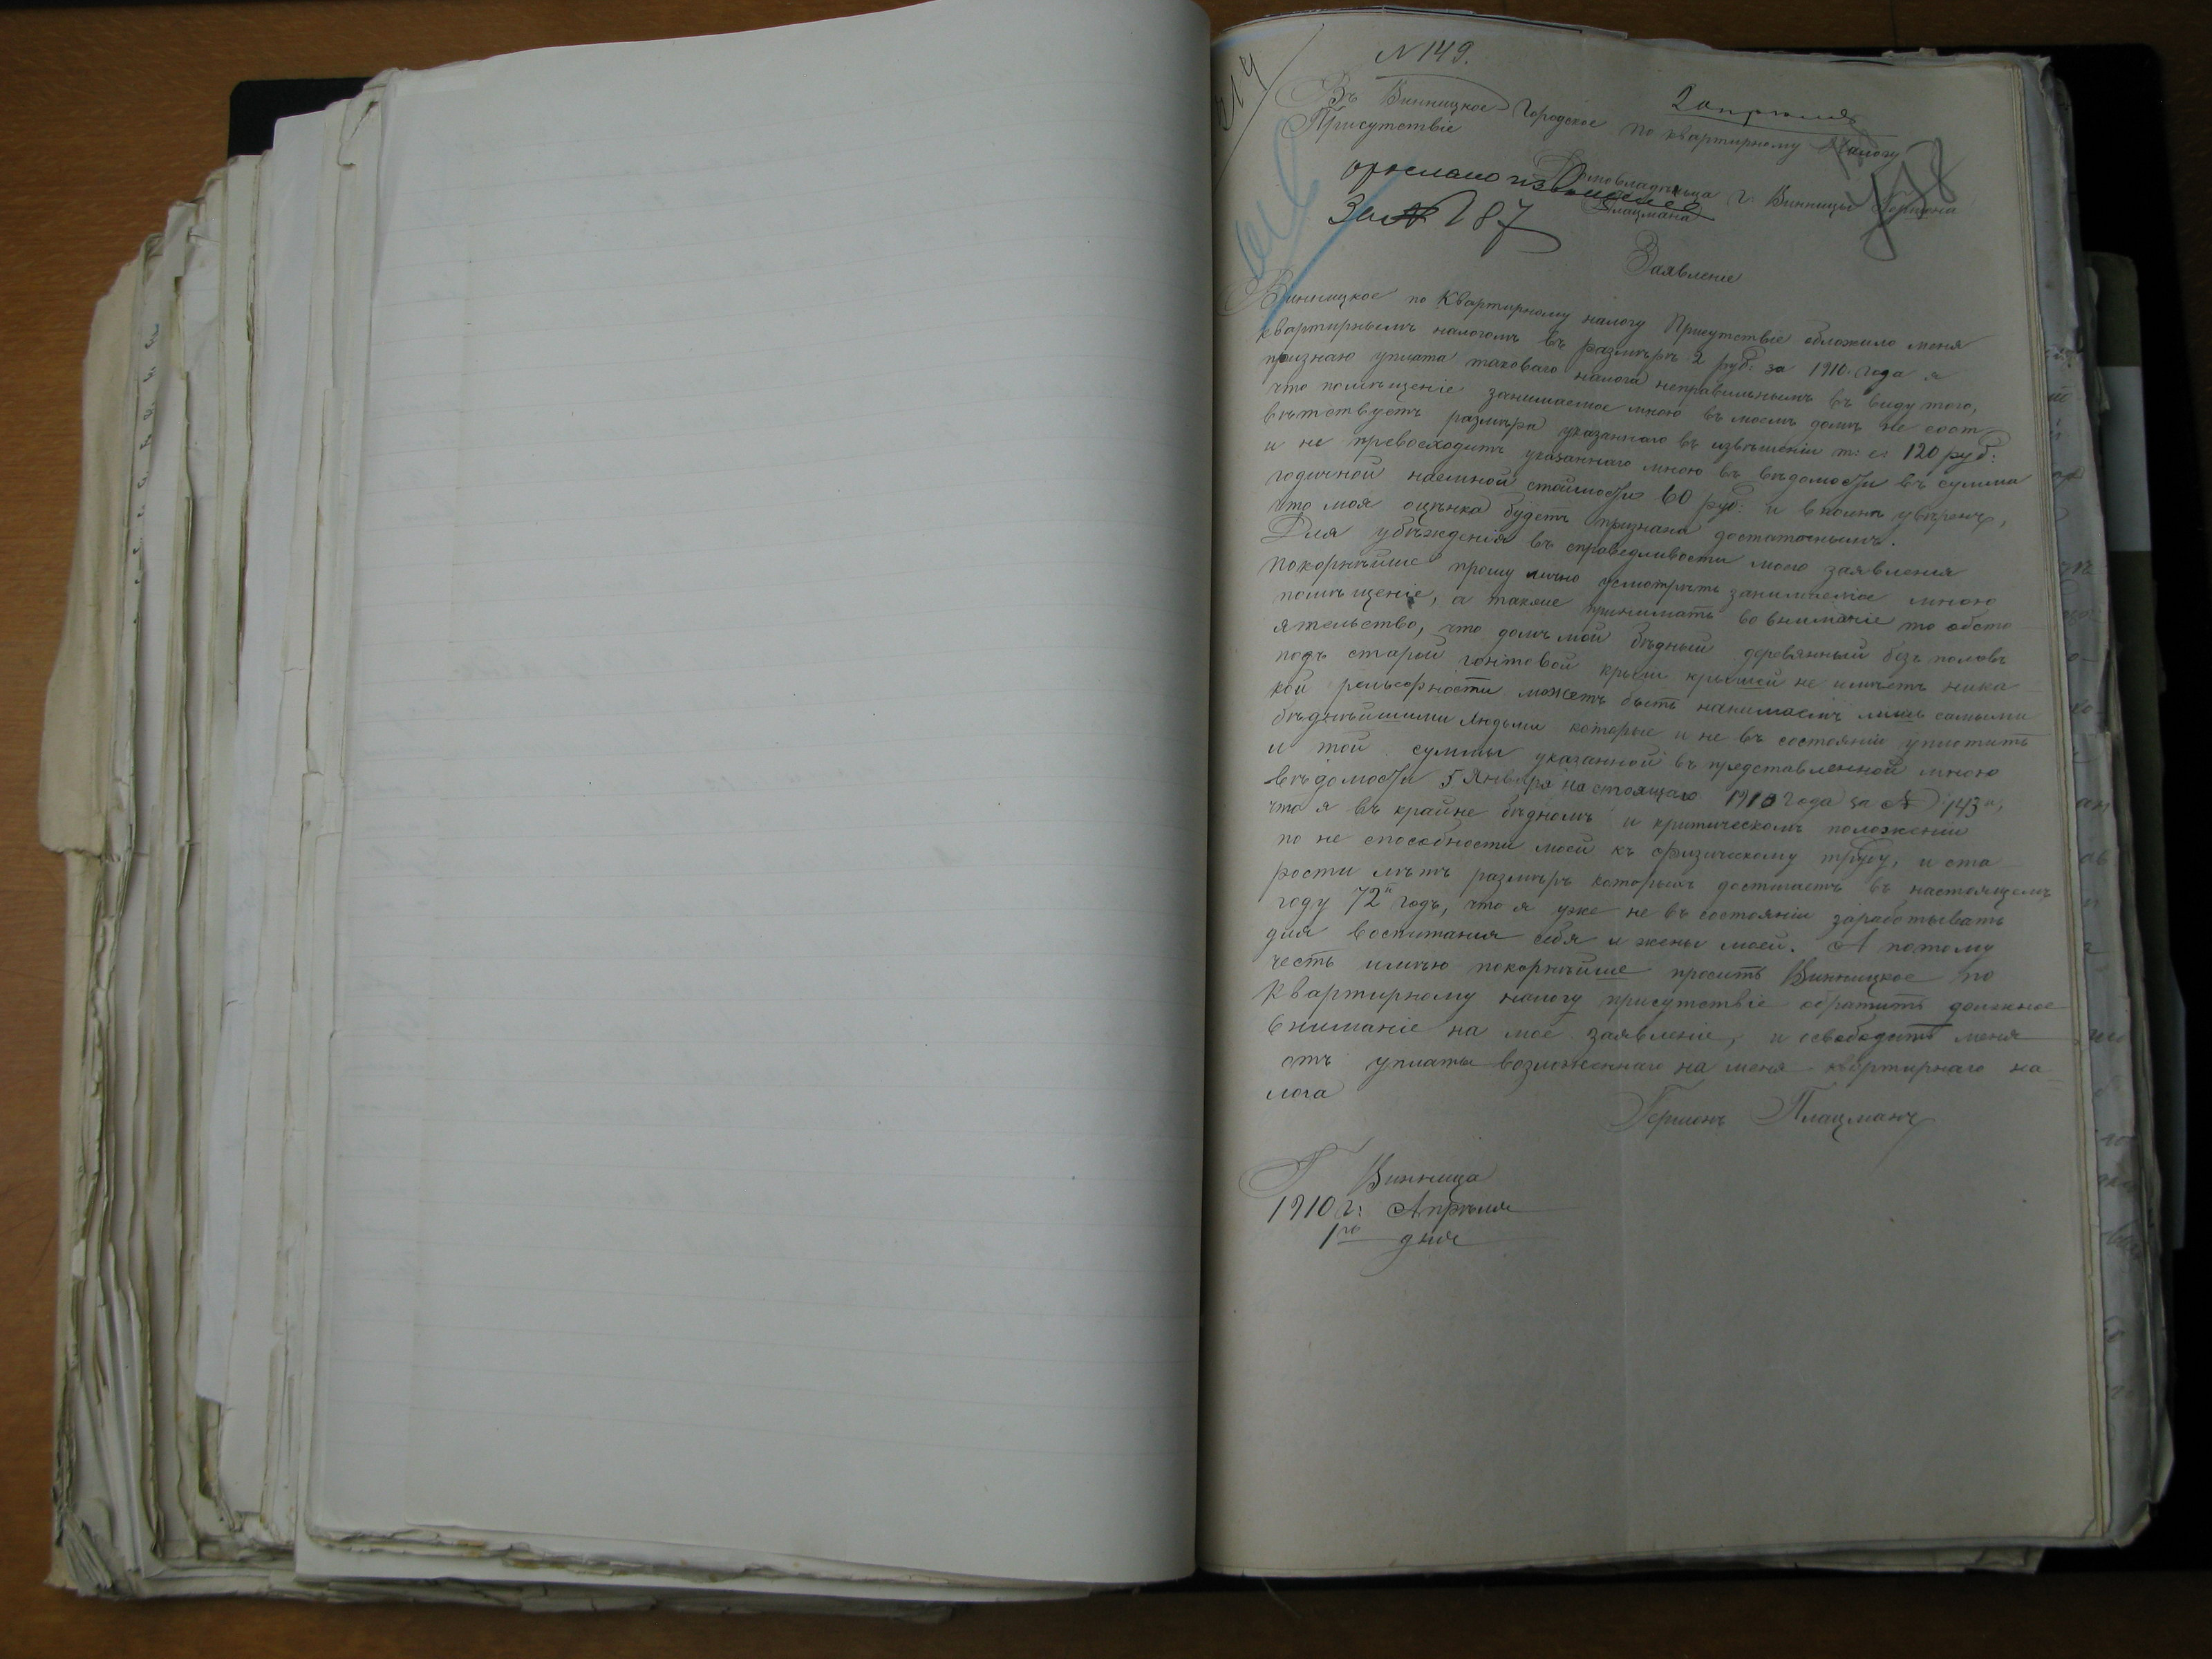 N 149.
2 апреля
Въ Винницкое Городское по квартирному Налогу
Присутствіе
Домовладѣльца г. Винницы Гершона
Плацмана
За № 187
Заявленіе
Винницкое по Квартирному налогу Присутствіе обложило меня
квартирнымъ налогомъ въ размѣрѣ 2 руб: за 1910 года я
признаю уплата таковаго налога неправильнымъ въ виду того,
что помѣщеніе занимаемое мною въ моемъ домѣ не соот
вѣтствуетъ размѣра указаннаго въ извѣщеніи т: е: 120 руб:
и не превосходитъ указаннаго мною въ вѣдомости въ сумма
годичной наемной стоимости 60 руб: и вполнѣ увѣренъ,
что моя оцѣнка будетъ признана достаточнымъ.
Для убѣжденія въ справедливости моего заявленія
покорнѣйше прошу лично усмотрѣть занимаемое мною
помѣщеніе, а также принимать во вниманіе то обсто
ятельство, что домъ мой бѣдный деревянный безъ половъ
подъ старой гонтовой крыши крышей не имѣетъ ника
кой рельефности можетъ быть нанимаемъ лишь самыми
бѣднѣйшими людьми которые и не въ состояніи уплотить
и той суммы указанной въ представленной мною
вѣдомости 5 Января настоящаго 1910 года за № 143
что я въ крайне бѣдномъ и критическомъ положеніи
по не способности моей къ физическому труду, и ста
рости лѣтъ размѣръ которыхъ достигаетъ въ настоящемъ
году 72й годъ, что я уже не въ состояніи заработывать
для воспитанія себя и жены моей. А потому
честь имѣю покорнѣйше просить Винницкое по
Квартирному налогу присутствіе обратить должное
вниманіе на мое заявленіе, и освободить меня
отъ уплаты возложеннаго на меня квартирнаго на=
лога
Гершонъ Плацманъ
Г Винница
1910 г: Апрѣля
1го дня